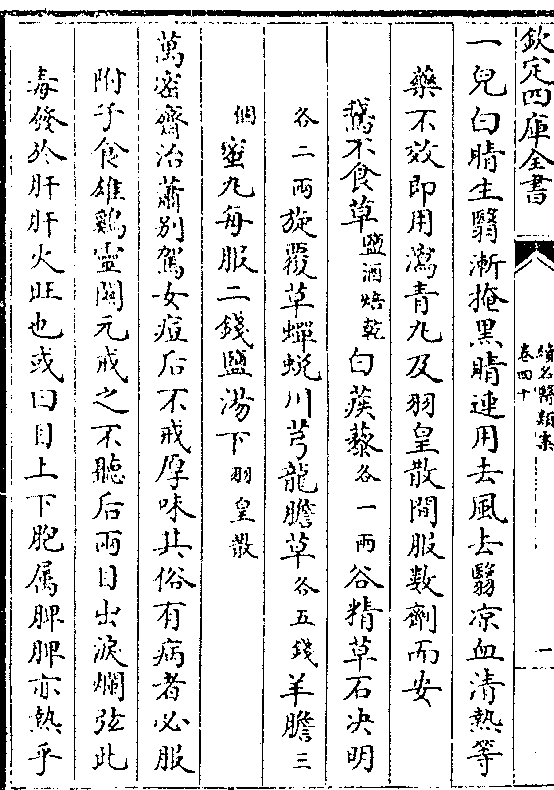 欽定四庫全書
續名醫類案
卷四十
一
一兒白睛生翳漸掩黑睛連用去風去翳凉血清熱等
藥不效即用瀉青丸及羽皇散間服數劑而安
鵞不食草鹽酒焙乾白蒺藜各一兩谷精草石决明
各二兩旋覆草蟬蜕川芎龍膽草各五錢羊膽三
個蜜丸每服二錢鹽湯下羽皇散
萬密齋治蕭別駕女痘后不戒厚味其俗有病者必服
附子食雄鷄靈關元戒之不聽后兩目出淚爛弦此
毒發於肝肝火旺也或曰目上下胞属脾脾亦熱乎